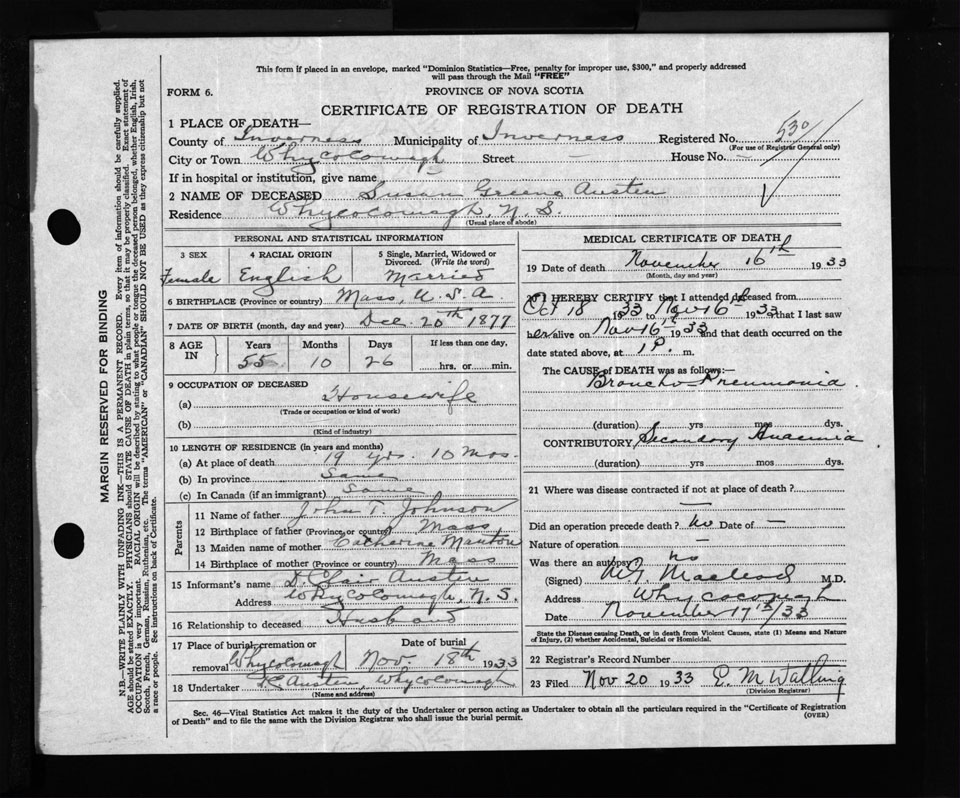 This form if placed in an envelope, marked "Dominion Statistics—Free, penalty for improper use, $300," and properly addressed
will pass through the Mail "FREE"
FORM 6.
PROVINCE OF NOVA SCOTIA
CERTIFICATE OF REGISTRATION OF DEATH
1 PLACE OF DEATH—
County of Inverness Municipality of Inverness Registered No. 530
(For use of Registrar General only)
City or Town Whycocomagh Street — House No. —
If in hospital or institution, give name
2 NAME OF DECEASED Susan Greeno Austen
Residence Whycocomagh, N. S.
(Usual place of abode)
PERSONAL AND STATISTICAL INFORMATION
3 SEX 4 RACIAL ORIGIN 5 Single, Married, Widowed or Divorced. (Write the word)
Female English Married
6 BIRTHPLACE (Province or country) Mass, U.S.A.
7 DATE OF BIRTH (month, day and year) Dec. 20th 1877
8 AGE IN Years Months Days If less than one day,
55 10 26 hrs. or min.
9 OCCUPATION OF DECEASED
(a) Housewife
(Trade or occupation or kind of work)
(b)
(Kind of industry)
10 LENGTH OF RESIDENCE (in years and months)
(a) At place of death 19 yrs. 10 Mos.
(b) In province Same
(c) In Canada (if an immigrant) Same
Parents
11 Name of father John T. Johnson
12 Birthplace of father (Province or country) Mass
13 Maiden name of mother Catherine Manton
14 Birthplace of mother (Province or country) Mass
15 Informant's name D. Clair Austen
Address Whycocomagh, N. S.
16 Relationship to deceased Husband
17 Place of burial, cremation or removal Whycocomagh Date of burial Nov. 18th 1933
18 Undertaker Austen, Whycocomagh
(Name and address)
MEDICAL CERTIFICATE OF DEATH
19 Date of death November 16th 1933
(Month, day and year)
20 I HEREBY CERTIFY that I attended deceased from
Oct 18 1933 to Nov 16th 1933 that I last saw
her alive on Nov 16th 1933 and that death occurred on the
date stated above, at 1 P. m.
The CAUSE of DEATH was as follows:
Broncho Pneumonia
(duration) yrs mos dys.
CONTRIBUTORY Secondary Anaemia
(duration) yrs mos dys.
21 Where was disease contracted if not at place of death?
—
Did an operation precede death? no Date of —
Nature of operation —
Was there an autopsy? no
(Signed) MacLeod M.D.
Address Whycocomagh
Date November 17th/33
State the Disease causing Death, or in death from Violent Causes, state (1) Means and Nature
of Injury, (2) whether Accidental, Suicidal or Homicidal.
22 Registrar's Record Number
23 Filed Nov 20 1933 E. M Walling
(Division Registrar)
Sec. 46—Vital Statistics Act makes it the duty of the Undertaker or person acting as Undertaker to obtain all the particulars required in the "Certificate of Registration
of Death" and to file the same with the Division Registrar who shall issue the burial permit.
(OVER)
MARGIN RESERVED FOR BINDING
N.B.—WRITE PLAINLY WITH UNFADING INK—THIS IS A PERMANENT RECORD. Every item of information should be carefully supplied.
AGE should be stated EXACTLY. PHYSICIANS should STATE CAUSE OF DEATH in plain terms, so that it may be properly classified. Exact statement of
OCCUPATION is very important. RACIAL ORIGIN will be described by stating to what people or tongue the deceased person belonged, whether English, Irish,
Scotch, French, German, Russian, Ruthenian, etc. The terms "AMERICAN" or "CANADIAN" SHOULD NOT BE USED as they express citizenship but not
a race or people. See instructions on back of Certificate.